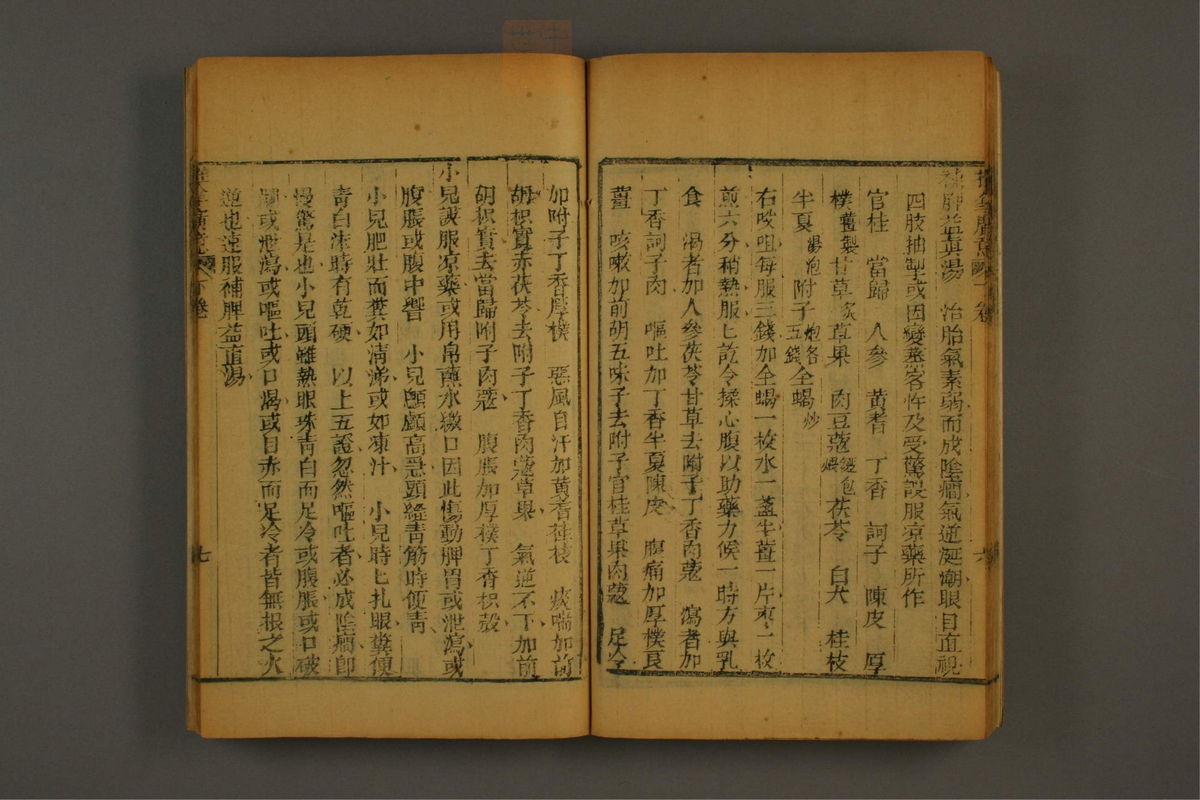 補脾益真湯　治胎氣素弱而成陰癎氣逆涎潮眼目直視
四肢抽掣或因變蒸客忤及受驚誤服涼藥所作
官桂　當歸　人參　黃耆　丁香　訶子　陳皮　厚
樸薑製甘草炙草果　肉豆蔻麵包煨　茯苓　白朮　桂枝
半夏湯泡附子炮各五錢全蝎炒
右㕮咀每服三錢加全蝎一枚水一盞半薑一片棗一枚
煎六分稍熱服訖令揉心腹以助藥力候一時方與乳
食　渴者加人參茯苓甘草去附子丁香肉蔻　瀉者加
丁香訶子肉　嘔吐加丁香半夏陳皮　腹痛加厚樸良
薑　咳嗽加前胡五味子去附子官桂草果肉蔻　足冷
加附子丁香厚樸　惡風自汗加黃耆桂枝　痰喘加前
胡枳實赤茯苓去附子丁香肉蔻草果　氣逆不下加前
胡枳實去當歸附子肉蔻　腹脹加厚樸丁香枳殼
小兒誤服涼藥或用帛蘸水繳口因此傷動脾胃或泄瀉或
腹脹或腹中響　小兒顖顱高急頭縫青筋時便青
小兒肥壯而糞如清涕或如凍汁　小兒時上扎眼糞便
青白沫時有乾硬　以上五證忽然嘔吐者必成陰癎即
慢驚是也小兒頭雖熱眼珠青白而足冷或腹脹或口破
或泄瀉或嘔吐或口渴或目赤而足冷者皆無根之火
逆也速服補脾益真湯
下卷
七